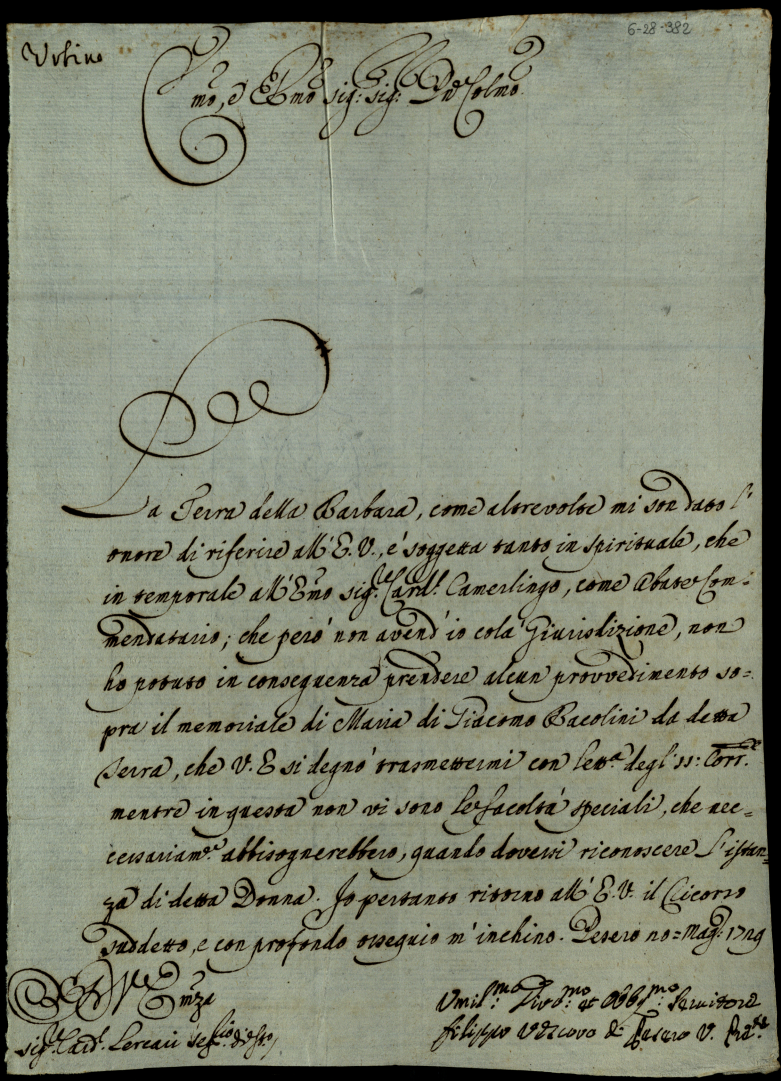 6-28-382
Urbino
Emo, e Rmo sig: sig: Pne Colmo
La Terra della Barbara, come altrevolte mi son dato l'
onore di riferire all'E.V., e' soggetta tanto in spirituale, che
in temporale all'Emo sigr. Cardl. Camerlingo, come Abate Com-
mendatario; che pero' non avend'io colà Giurisdizione, non
ho potuto in conseguenza prendere alcun provvedimento so=
pra il memoriale di Maria di Giacomo Bacolini da detta
Terra, che V. E si degno' trasmettermi con lettª. degl'11: Corre.
mentre in questa non vi sono le facoltà speciali, che nec=
cessariamte. abbisognerebbero, quando dovessi riconoscere l'istan=
za di detta Donna. Io pertanto ritorno all'E.V. il Ricorso
suddetto, e con profondo ossequio m'inchino. Pesaro 20=Magg: 1729
Emza
Umilmo Divmo et Obbgmo Servitore
sigr. Card. Lercari Segrio di Sto,
Filippo Vescovo di Pesaro V. Prete